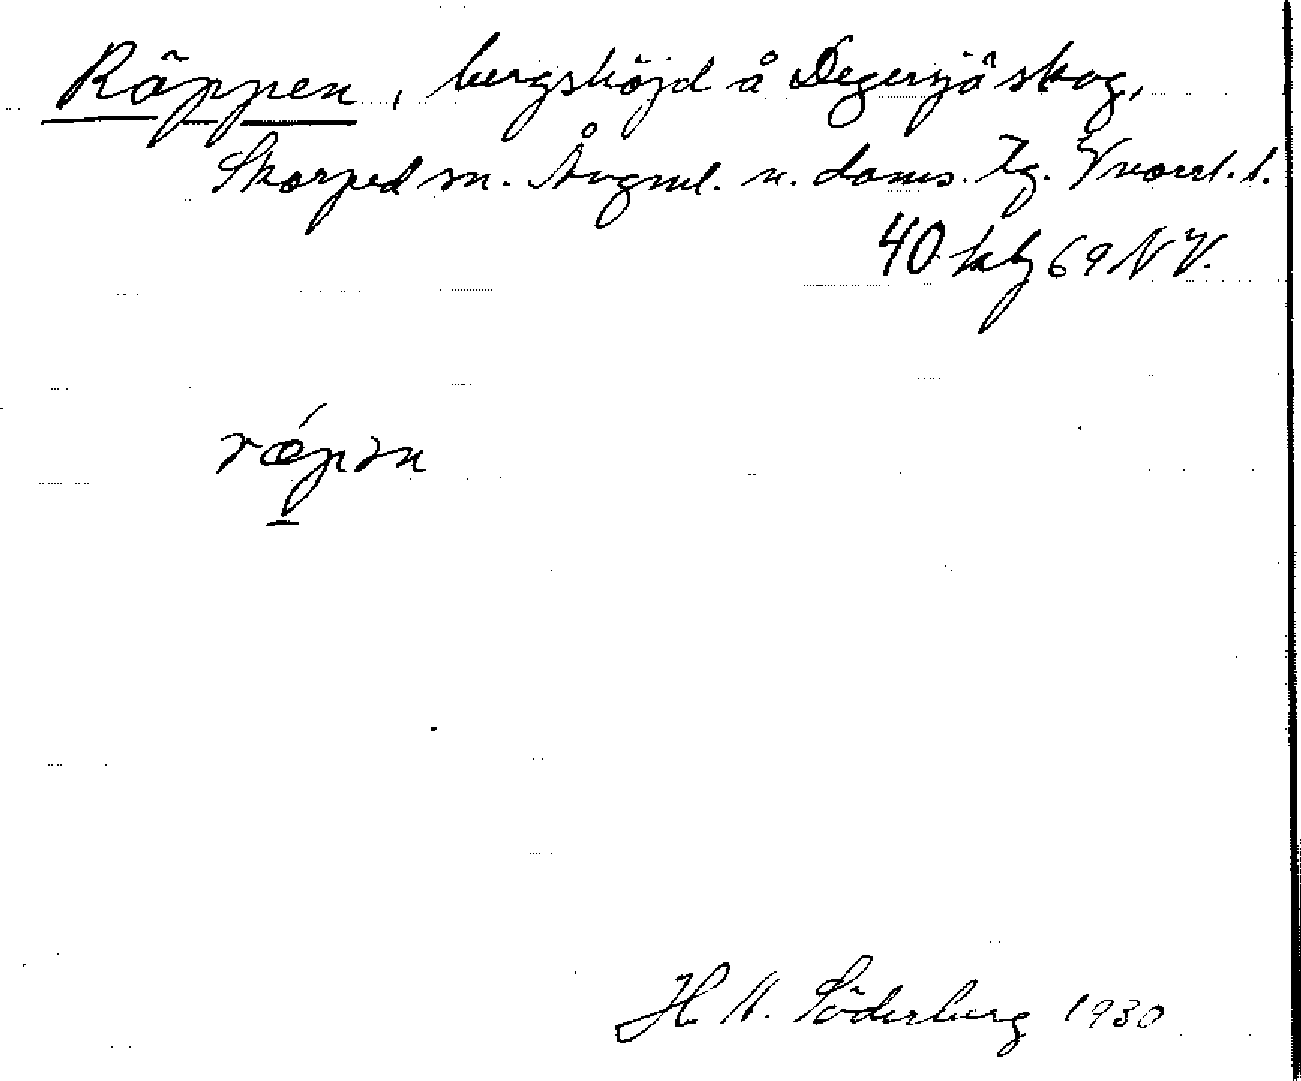 Räppen, bergshöjd å Degersjö skog,
Skorped sn. Ångml. n. doms. Tg. Vnorrl. l.
40 kbl 69 NV.
rǽpən
H. N. Söderberg 1930